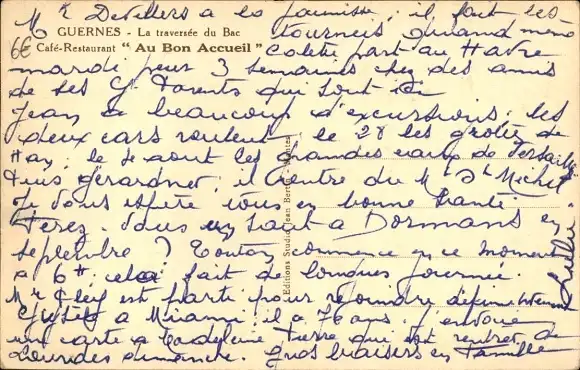 Mr Devillers a la jaunisse; il fait les
GUERNES - La traversée du Bac
tournées quand même
6€ Café-Restaurant "Au Bon Accueil"
Colette part au Havre
mardi pour 3 semaines chez des amis
de ses Gds Parents qui sont ici
Jean a beaucoup d'excursions; les
deux cars roulent le 28 les grottes de
Han; le 5 août les grandes eaux de Versailles
puis Gérardmer; il rentre du Mt St Michel
Je vous espère tous en bonne santé
Ferez-vous un saut à Dormans en
septembre ? Tonton commence en ce moment
à 6h, cela fait de longues journées.
Mr est parti pour rejoindre définitivement
à Miami; il a 70 ans. J'envoie
une carte à Madeleine Pierre qui est rentrée de
Lourdes dimanche. Gros baisers en famille
Editions Studio Jean Mantes